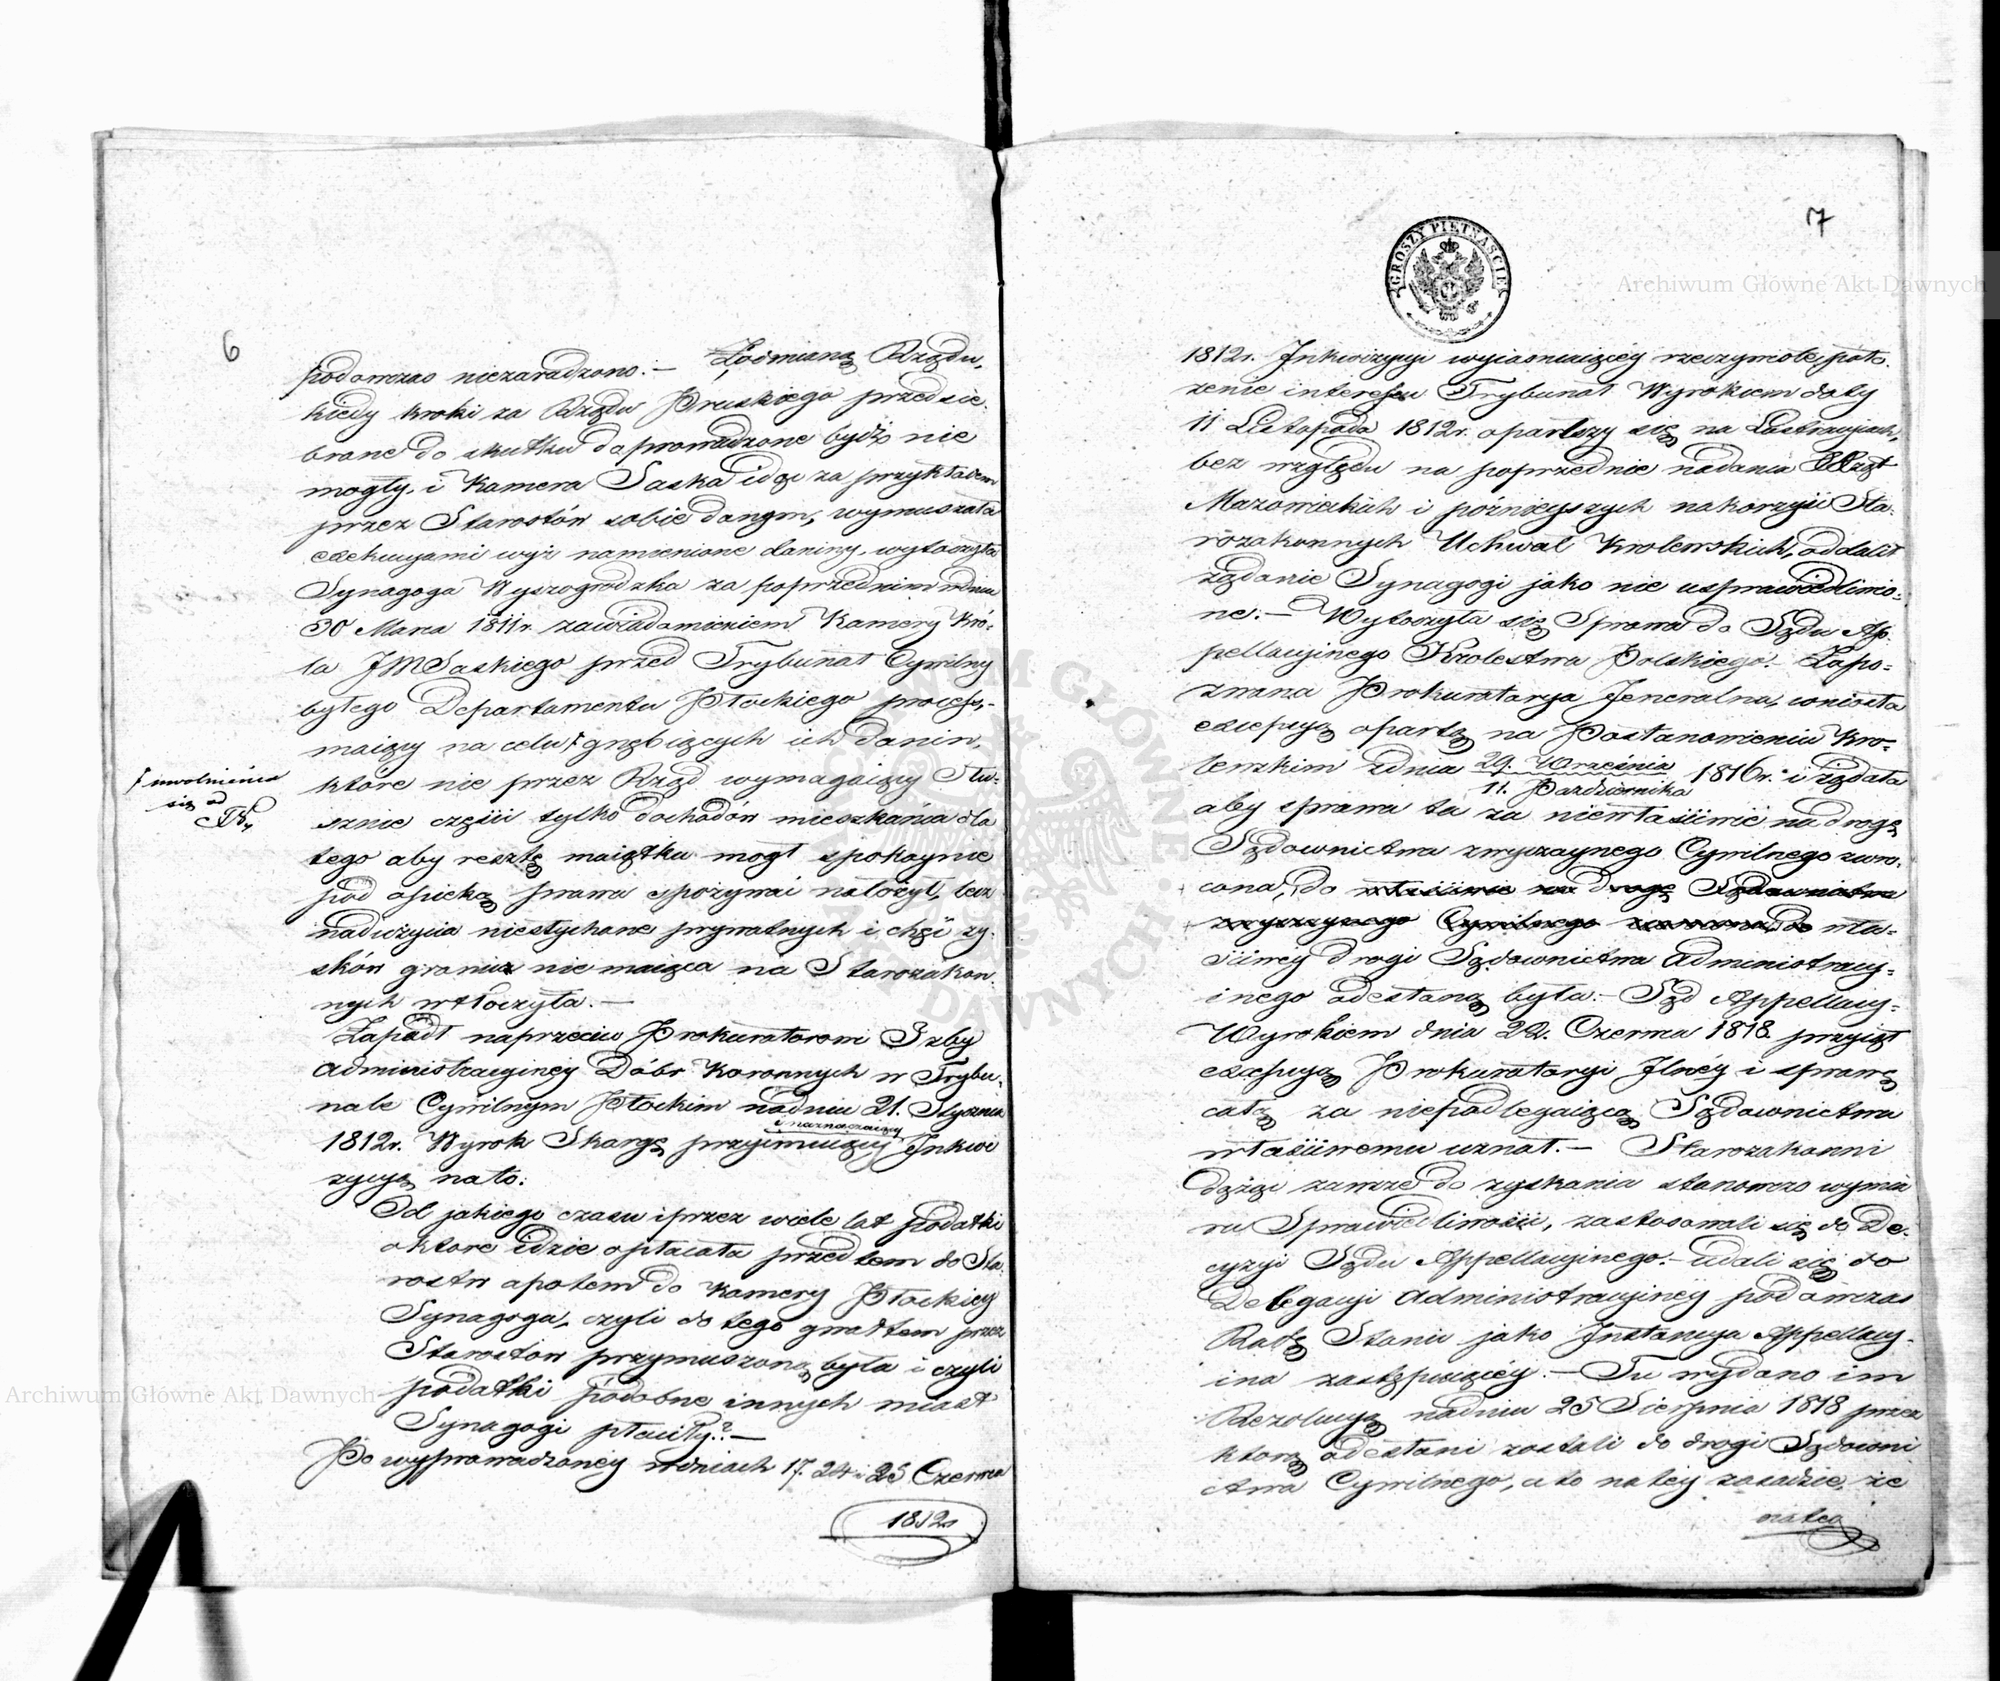 6
podowczas niezaradzono. — Zodmianą Rządu,
kiedy kroki za Rządu Pruskiego przedsie-
brane do skutku doprowadzone bydź nie
mogły, i Kamera Saska idąc za przykładem
przez Starostów sobie danym, wymuszała
exekucyami wyż namienione daniny, wytoczyła
Synagoga Wyszogrodzka za poprzednim wdniu
30 Marca 1811r. zawiadomieniem Kamery Kró-
la JMSaskiego przed Trybunał Cywilny
byłego Departamentu Płockiego process,-
maiący na celu Ɨ gnębiących ich danin,
Ɨ uwolnienia
się od
które nie przez Rząd wymagaiący Słu-
sznie części tylko dochodów mieszkańca dla
tego aby resztę maiątku mogł spokoynie
pod opieką prawa spożywać nałożył, lecz
nadużycia niesłychane prywatnych i chęć zy-
sków granic nie maiąca na Starozakon-
nych wtłoczyła. —
Zapadł naprzeciw Prokuratorowi Izby
Administracyinéy Dóbr Koronnych w Trybu-
nale Cywilnym Płockim nadniu 21. Stycznia
i naznaczaiący
1812r. Wyrok Skargę przyimuiący Inkwi
zycyą nato:
Od jakiego czasu iprzez wiele lat podatki
oktore idzie opłacała przedtem do Sta-
rostw apotem do Kamery Płockiey
Synagoga, czyli do tego gwałtem przez
Starostów przymuszoną była i czyli
podatki podobne innych miast
Synagogi płaciły? —
Po wyprowadzonéy wdniach 17. 24 i 25 Czerwca
1812r
7
GROSZY PIĘTNAŚCIE
1812r. Inkwizycyi wyiaśniaiącéy rzeczywiste poło-
żenie interessu Trybunał Wyrokiem daty
11 Listopada 1812r. oparłszy się na Lustracyiach,
bez względu na poprzednie nadania Xiążąt
Mazowieckich i późnieyszych nakorzyść Sta-
rozakonnych Uchwał Krolewskich, oddalił
żądanie Synagogi jako nie usprawiedliwio-
ne. — Wytoczyła się Sprawa do Sądu Ap-
pellacyinego Krolestwa Polskiego. — Zapo-
zwana Prokuratorya Jeneralna, wniosła
excepcyą opartą na Postanowieniu Kro-
lewskim zdnia 29. Września 1816r. i żądała
11. Października
aby sprawa ta za niewłaściwie na drogę
Sądownictwa zwyczaynego Cywilnego zwro-
cona, do właściwie na drogę Sądownictwa
zwyczaynego Cywilnego zwrocona, do wła-
ściwey drogi Sądownictwa Administracy-
inego odesłaną była. — Sąd Appellacy-
Wyrokiem dnia 22. Czerwca 1818. przyiął
excepcyą Prokuratoryi Jlnéy i sprawę
całą za niepodlegaiącą Sądownictwu
właściwemu uznał. — Starozakonni
dążąc zawsze do zyskania stanowczo wymia
ru Sprawiedliwości, zastosowali się do De-
cyzyi Sądu Appellacyinego. — udali się do
Delegacyi Administracyinéy podówczas
Radę Stanu jako Instancya Appellacy-
ina zastępuiącéy. — Tu wydano im
Rezolucyą nadniu 25 Sierpnia 1818 przez
ktorą odesłani zostali do drogi Sądowni
ctwa Cywilnego, a to na téy zasadzie, że
Archiwum Główne Akt Dawnych
Archiwum Główne Akt Dawnych
ARCHIWUM GŁÓWNE AKT DAWNYCH